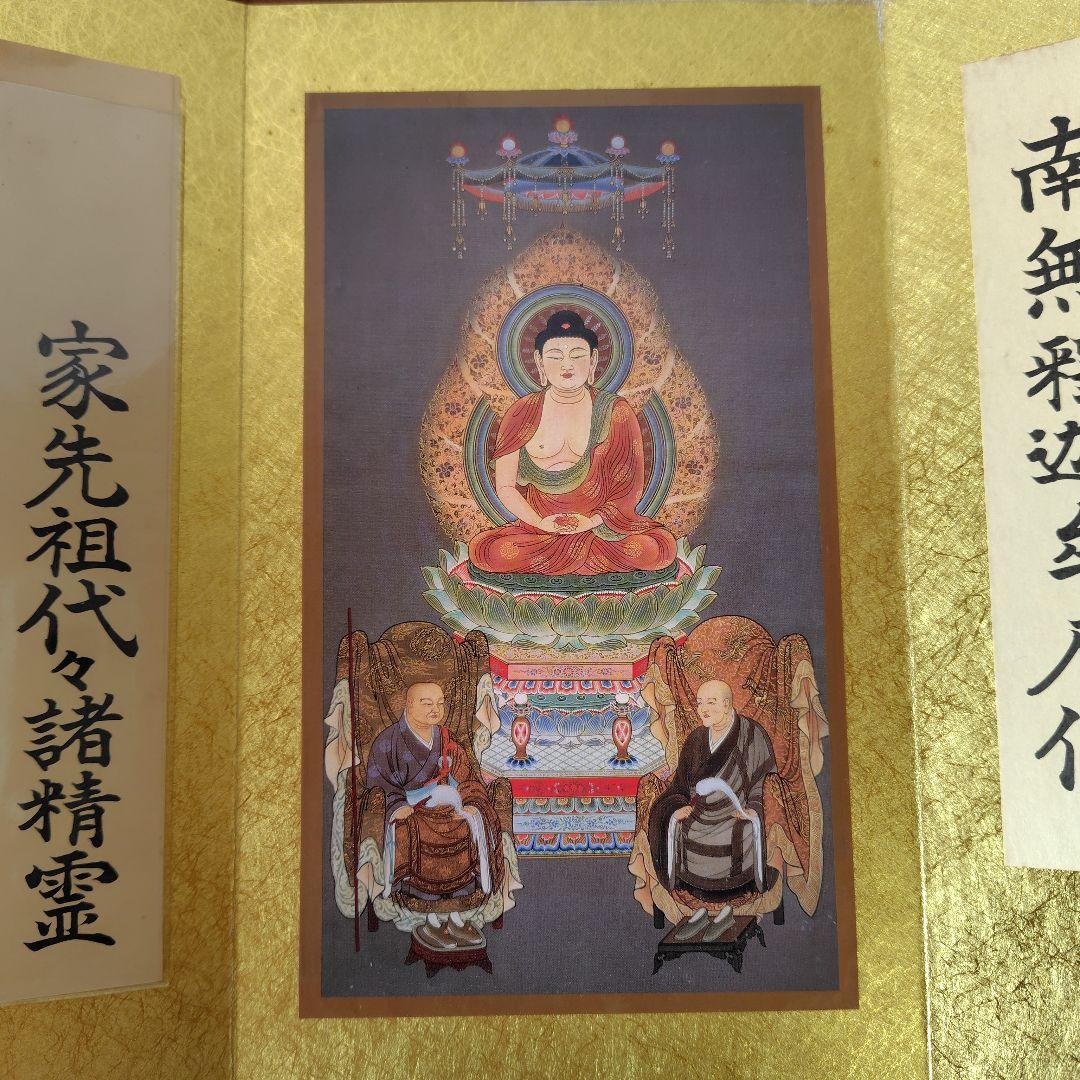 南無釈迦牟尼仏
家先祖代々諸精霊